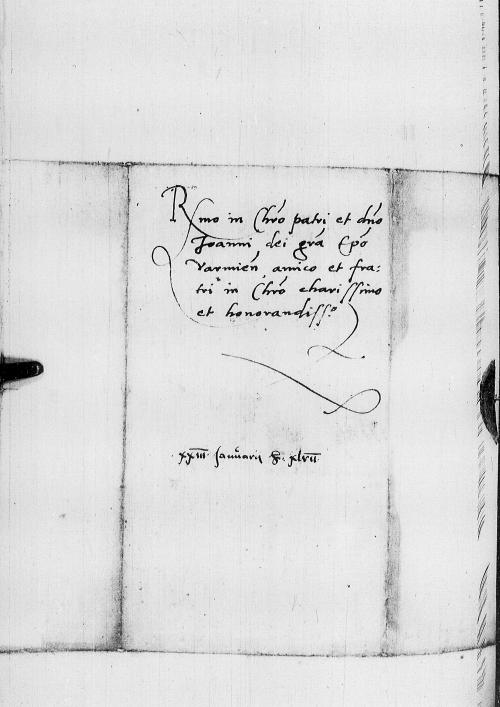 Rmo in Chro patri et dno
Joanni dei gra Epo
Varmien amico et fra:
tri in Chro charissimo
et honorandiss:o
xxiii Januarii xlvii